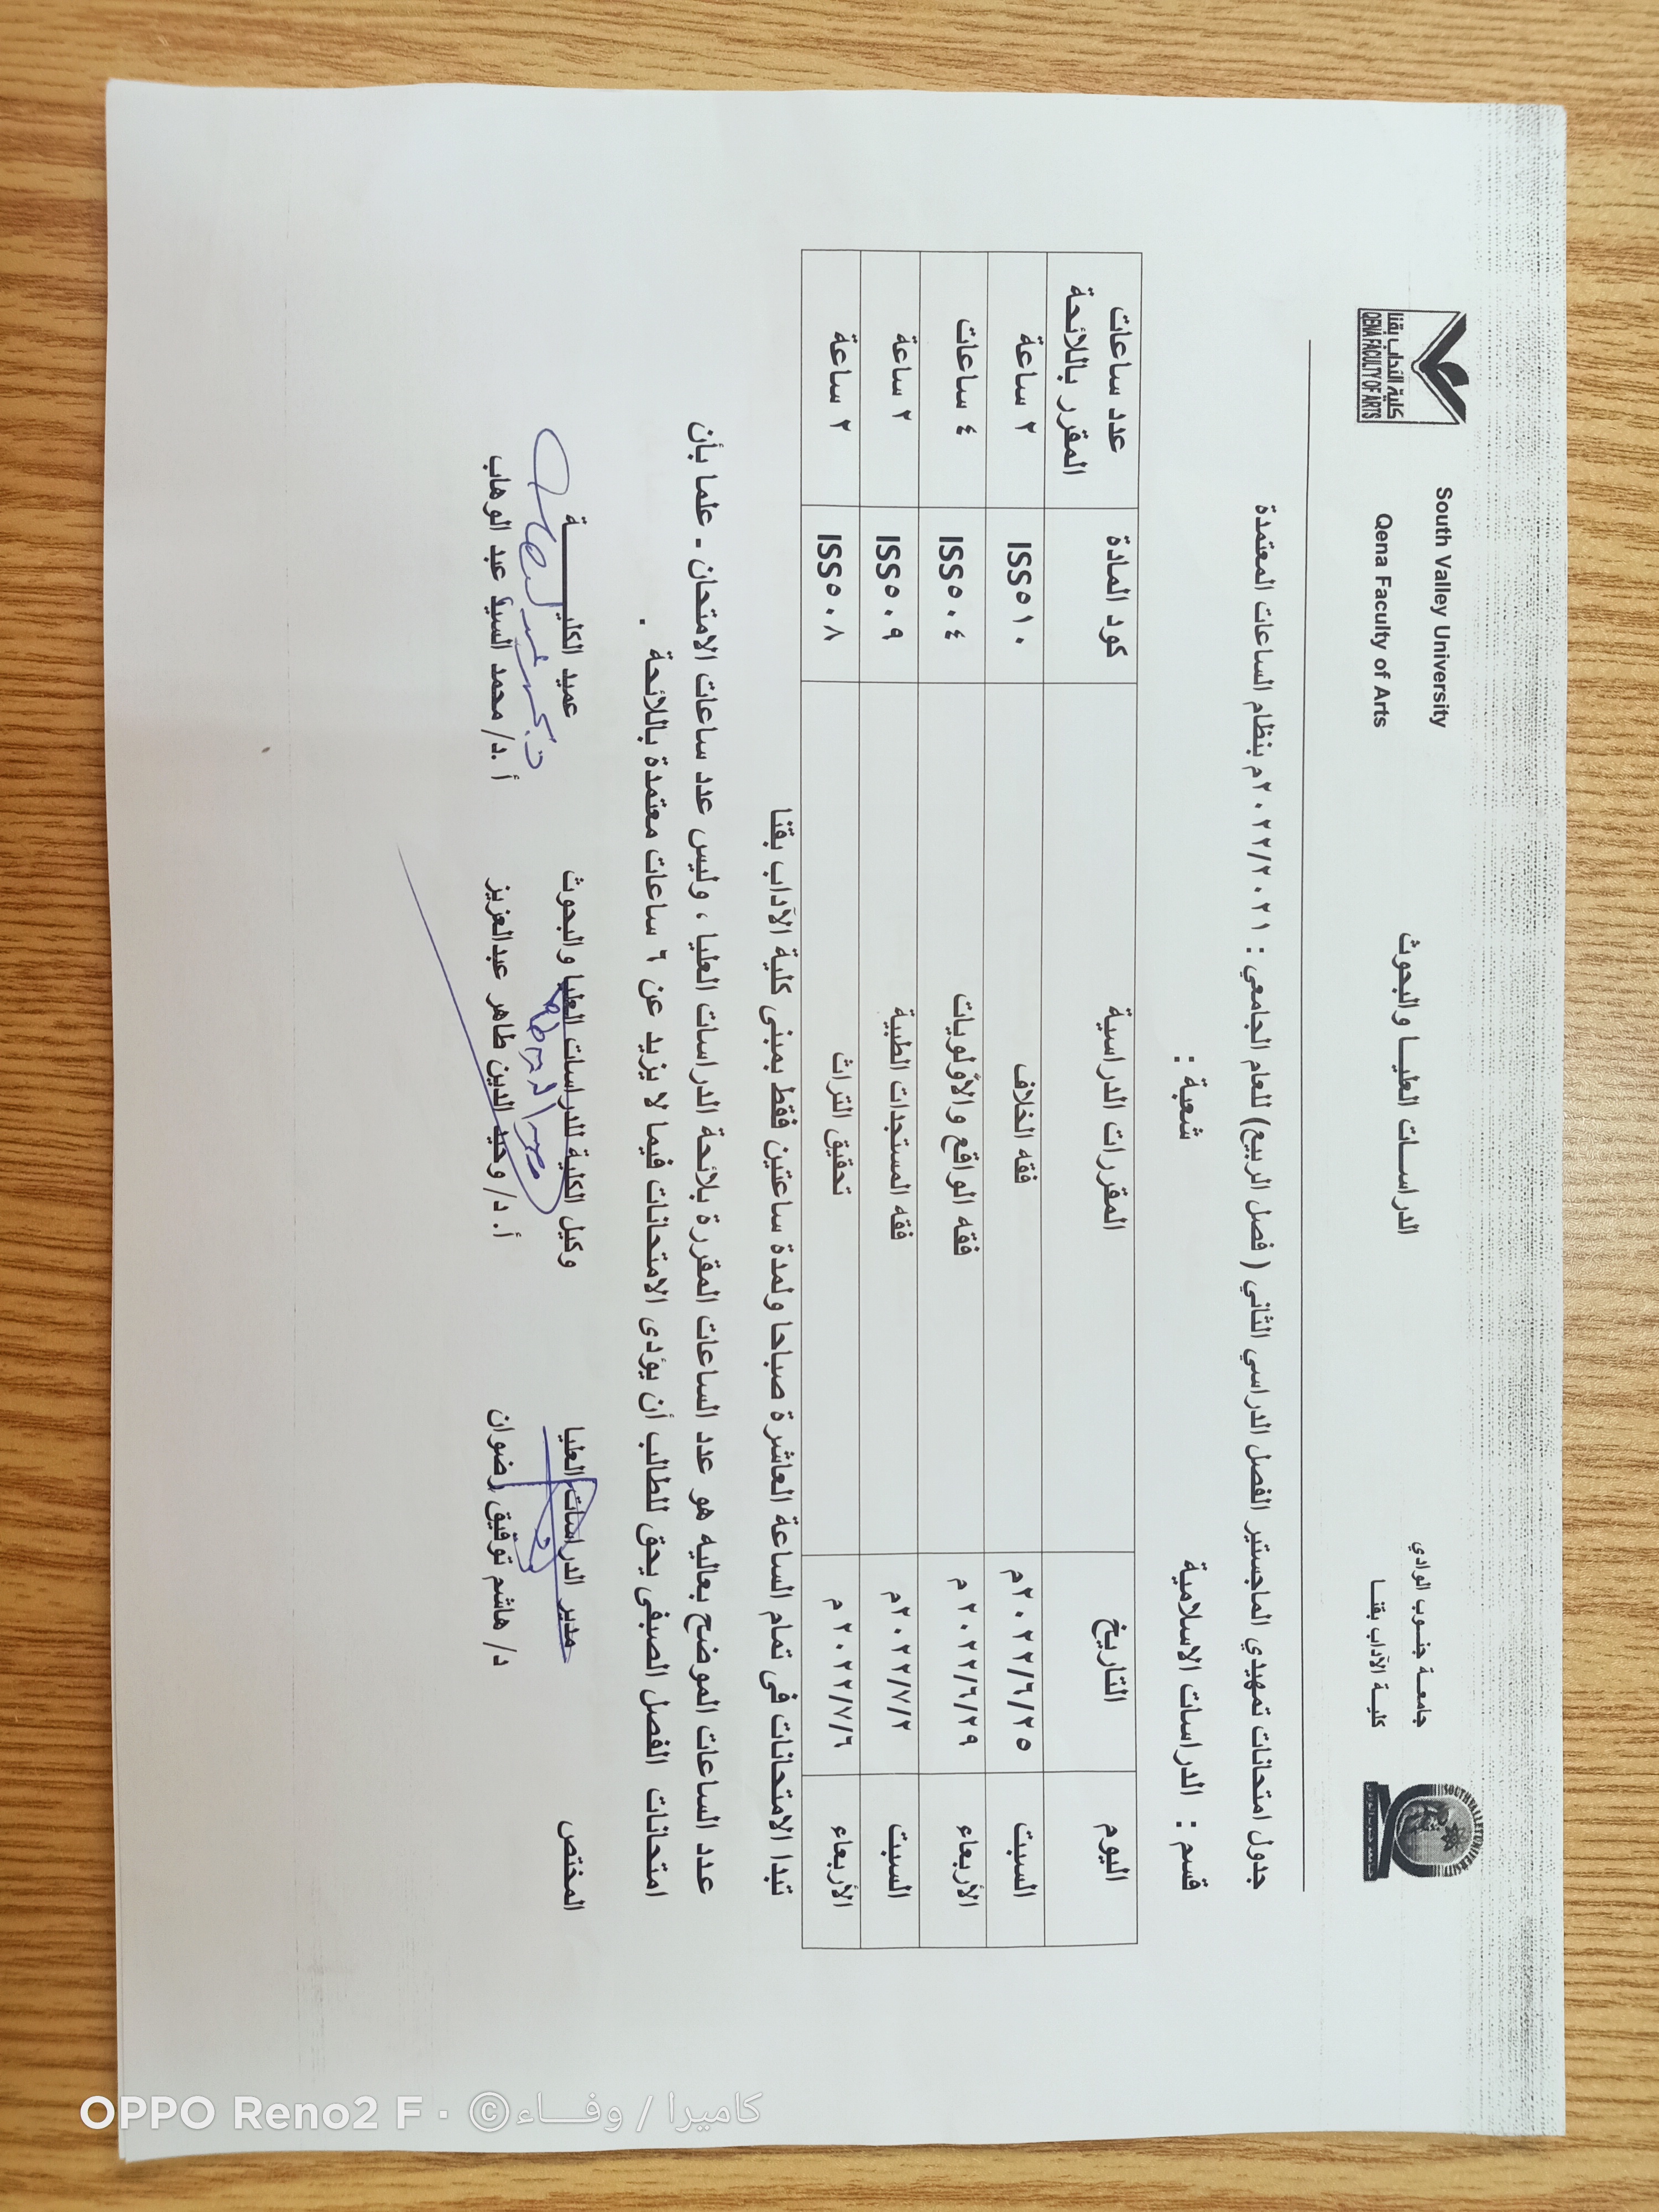 جامعة جنوب الوادي
كلية الآداب بقنا
الدراسات العليا والبحوث
South Valley University
Qena Faculty of Arts
SOUTH VALLEY UNIVERSITY
كلية الآداب بقنا
QENA FACULTY OF ARTS
جدول امتحانات تمهيدي الماجستير الفصل الدراسي الثاني ( فصل الربيع) للعام الجامعي : ٢٠٢٢/٢٠٢١م بنظام الساعات المعتمدة
قسم : الدراسات الاسلامية شعبة :
اليوم التاريخ المقررات الدراسية كود المادة عدد ساعات المقرر باللائحة
السبت ٢٠٢٢/٦/٢٥م فقه الخلاف ISS٥١٠ ٢ ساعة
الأربعاء ٢٠٢٢/٦/٢٩ م فقه الواقع والأولويات ISS٥٠٤ ٤ ساعات
السبت ٢٠٢٢/٧/٢م فقه المستجدات الطبية ISS٥٠٩ ٢ ساعة
الأربعاء ٢٠٢٢/٧/٦ م تحقيق التراث ISS٥٠٨ ٢ ساعة
تبدا الامتحانات فى تمام الساعة العاشرة صباحا ولمدة ساعتين فقط بمبنى كلية الآداب بقنا
عدد الساعات الموضح بعاليه هو عدد الساعات المقررة بلائحة الدراسات العليا ، وليس عدد ساعات الامتحان - علما بأن
امتحانات الفصل الصيفى يحق للطالب أن يؤدى الامتحانات فيما لا يزيد عن ٦ ساعات معتمدة باللائحة .
المختص مدير الدراسات العليا وكيل الكلية للدراسات العليا والبحوث عميد الكليـــــــة
د/ هاشم توفيق رضوان أ. د/ وحيد الدين طاهر عبدالعزيز أ .د/ محمد السيد عبد الوهاب
OPPO Reno2 F · ©كاميرا / وفـــاء